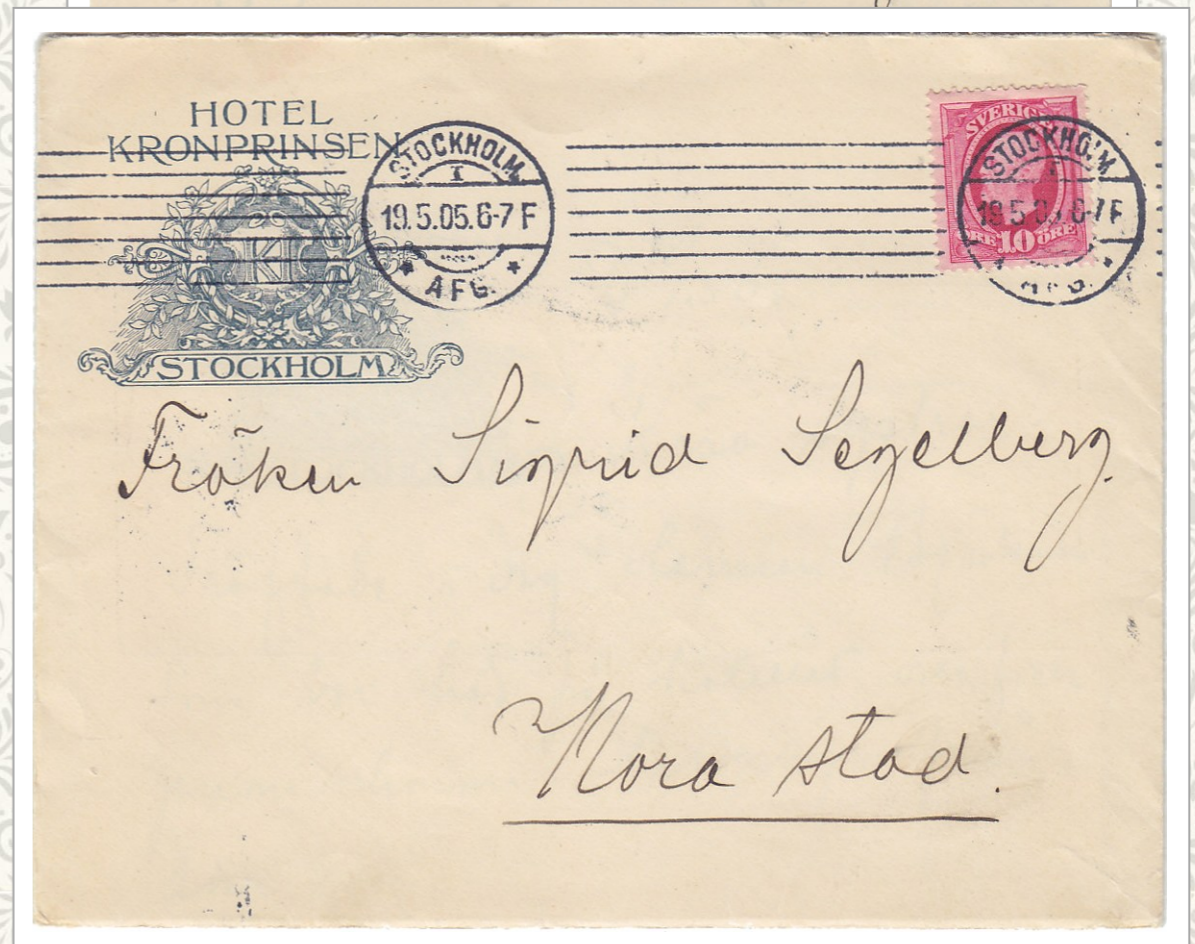 HOTEL
KRONPRINSEN
KP
STOCKHOLM
STOCKHOLM
1
19.5.05.6-7 F
AFG.
SVERIGE
ÖRE 10 ÖRE
STOCKHOLM
1
19.5.05.6-7 F
AFG.
Fröken Sigrid Segelberg.
Nora stad.